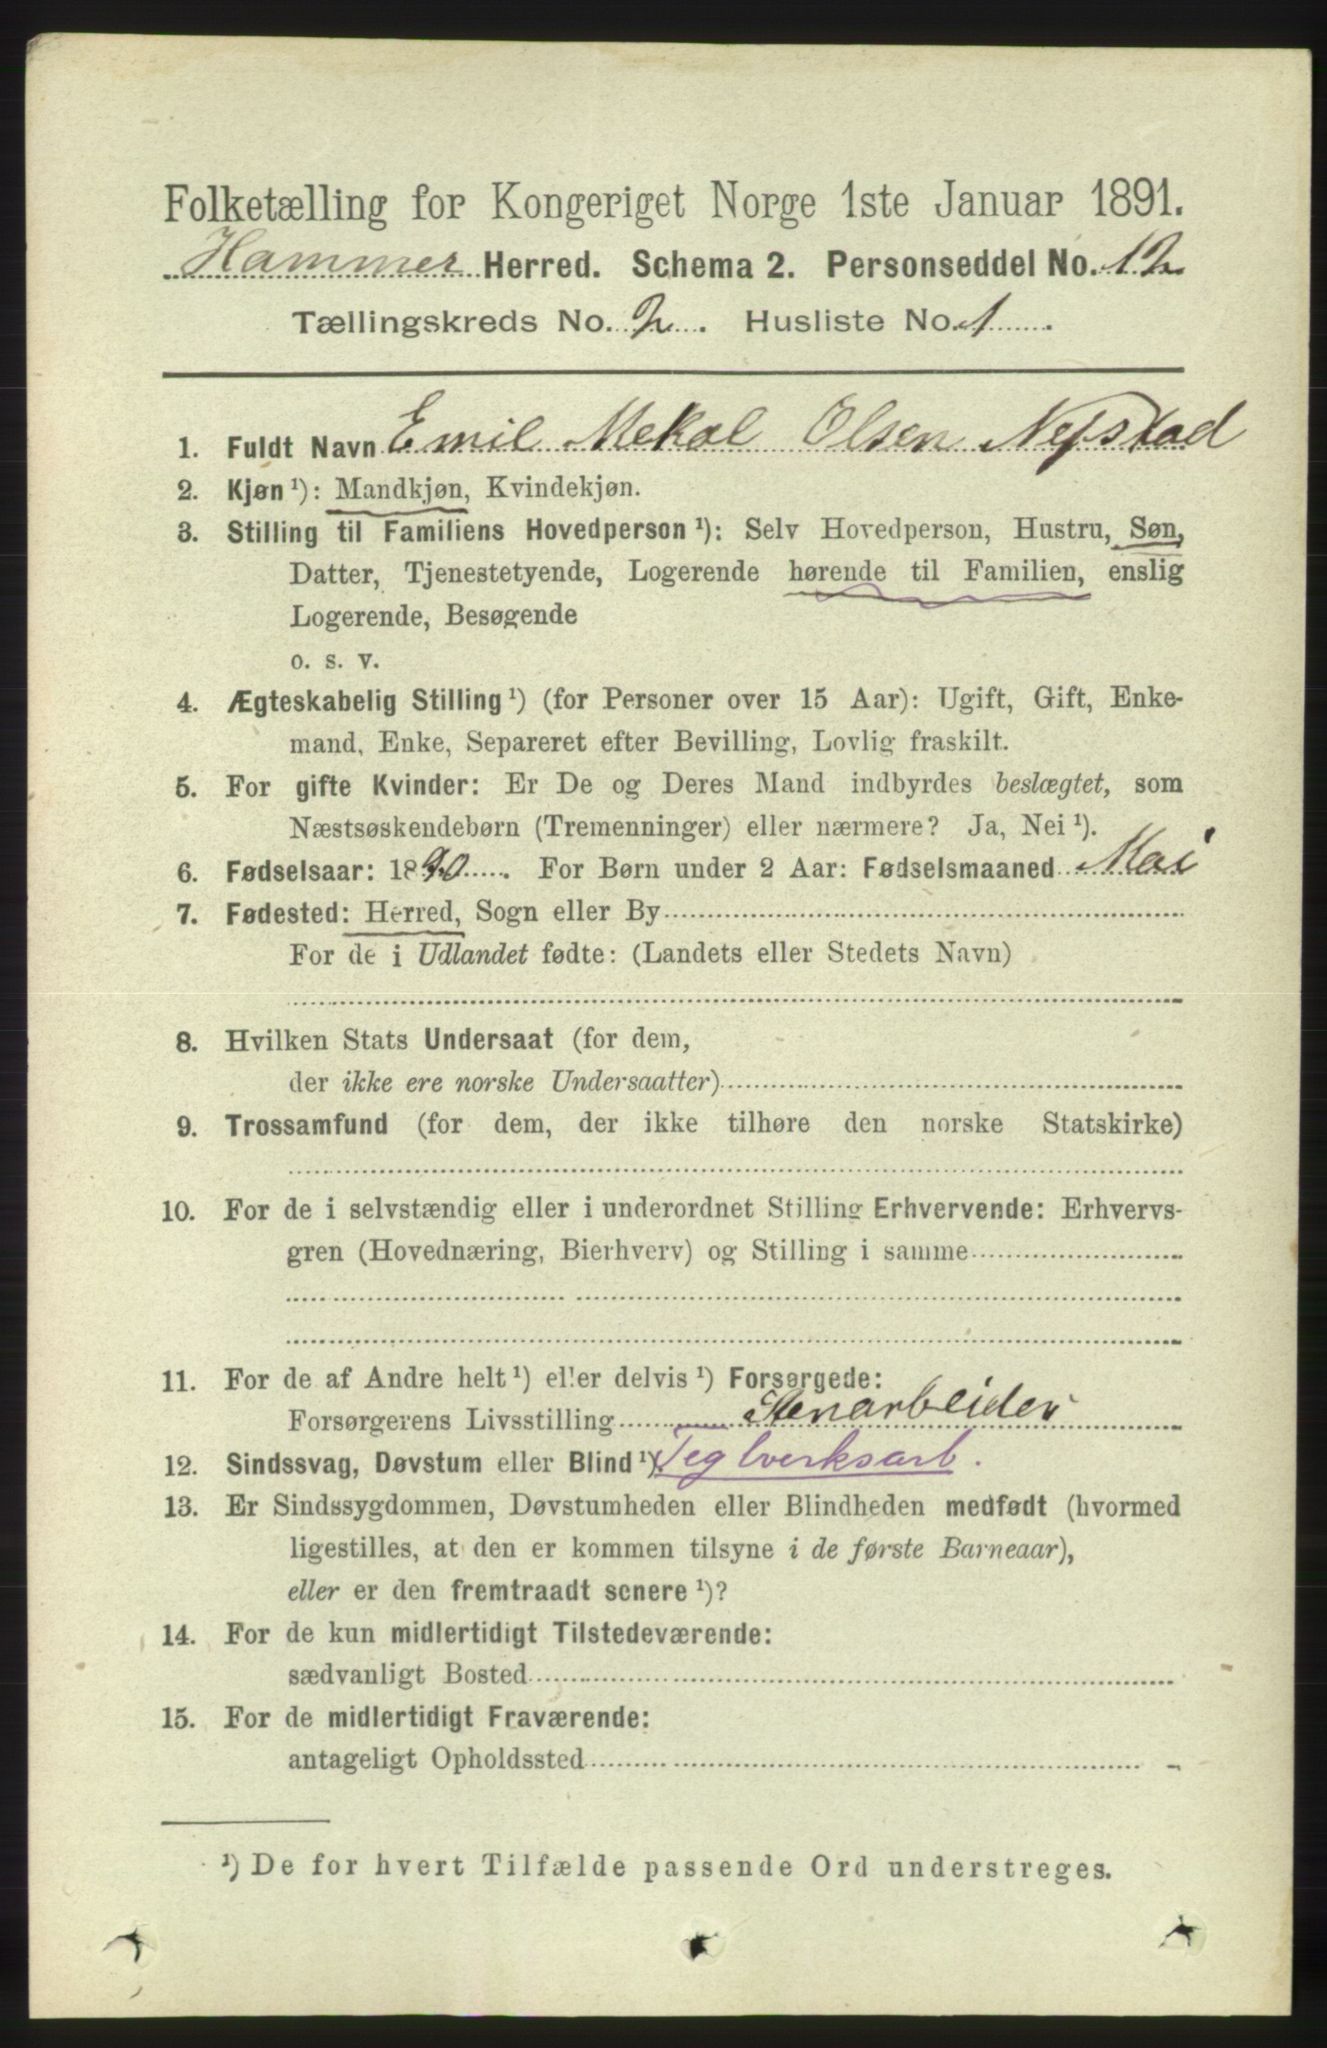 Folketælling for Kongeriget Norge 1ste Januar 1891.
Hammer Herred. Schema 2. Personseddel No. 12
Tællingskreds No. 2. Husliste No. 1
1. Fuldt Navn Emil Mekal Olsen Nepstad
2. Kjøn ¹): Mandkjøn, Kvindekjøn.
3. Stilling til Familiens Hovedperson ¹): Selv Hovedperson, Hustru, Søn,
Datter, Tjenestetyende, Logerende hørende til Familien, enslig
Logerende, Besøgende
o. s. v.
4. Ægteskabelig Stilling ¹) (for Personer over 15 Aar): Ugift, Gift, Enke-
mand, Enke, Separeret efter Bevilling, Lovlig fraskilt.
5. For gifte Kvinder: Er De og Deres Mand indbyrdes beslægtet, som
Næstsøskendebørn (Tremenninger) eller nærmere? Ja, Nei ¹).
6. Fødselsaar: 1890. For Børn under 2 Aar: Fødselsmaaned Mai
7. Fødested: Herred, Sogn eller By
For de i Udlandet fødte: (Landets eller Stedets Navn)
8. Hvilken Stats Undersaat (for dem,
der ikke ere norske Undersaatter)
9. Trossamfund (for dem, der ikke tilhøre den norske Statskirke)
10. For de i selvstændig eller i underordnet Stilling Erhvervende: Erhvervs-
gren (Hovednæring, Bierhverv) og Stilling i samme
11. For de af Andre helt ¹) eller delvis ¹) Forsørgede:
Forsørgerens Livsstilling Stenarbeider
12. Sindssvag, Døvstum eller Blind ¹). Teglverksarb.
13. Er Sindssygdommen, Døvstumheden eller Blindheden medfødt (hvormed
ligestilles, at den er kommen tilsyne i de første Barneaar),
eller er den fremtraadt senere ¹)?
14. For de kun midlertidigt Tilstedeværende:
sædvanligt Bosted
15. For de midlertidigt Fraværende:
antageligt Opholdssted
¹) De for hvert Tilfælde passende Ord understreges.